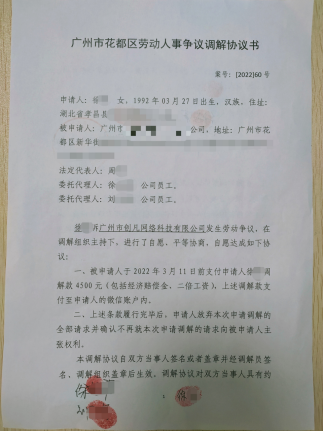 广州市花都区劳动人事争议调解协议书
案号：[2022]60 号
申请人：徐 女，1992 年 03 月 27 日出生，汉族，住址：
湖北省孝昌县
被申请人：广州市 公司，地址：广州市花
都区新华街
法定代表人：周
委托代理人：徐 公司员工。
委托代理人：刘 公司员工。
徐 诉广州市创凡网络科技有限公司发生劳动争议，在
调解组织主持下，进行了自愿、平等协商，自愿达成如下协
议：
一、被申请人于 2022 年 3 月 11 日前支付申请人徐 调
解款 4500 元（包括经济赔偿金、二倍工资），上述调解款支
付至申请人的微信账户内。
二、上述条款履行完毕后，申请人放弃本次申请调解的
全部请求并确认不再就本次申请调解的请求向被申请人主
张权利。
本调解协议自双方当事人签名或者盖章并经调解员签
名、调解组织盖章后生效。调解协议对双方当事人具有约
徐